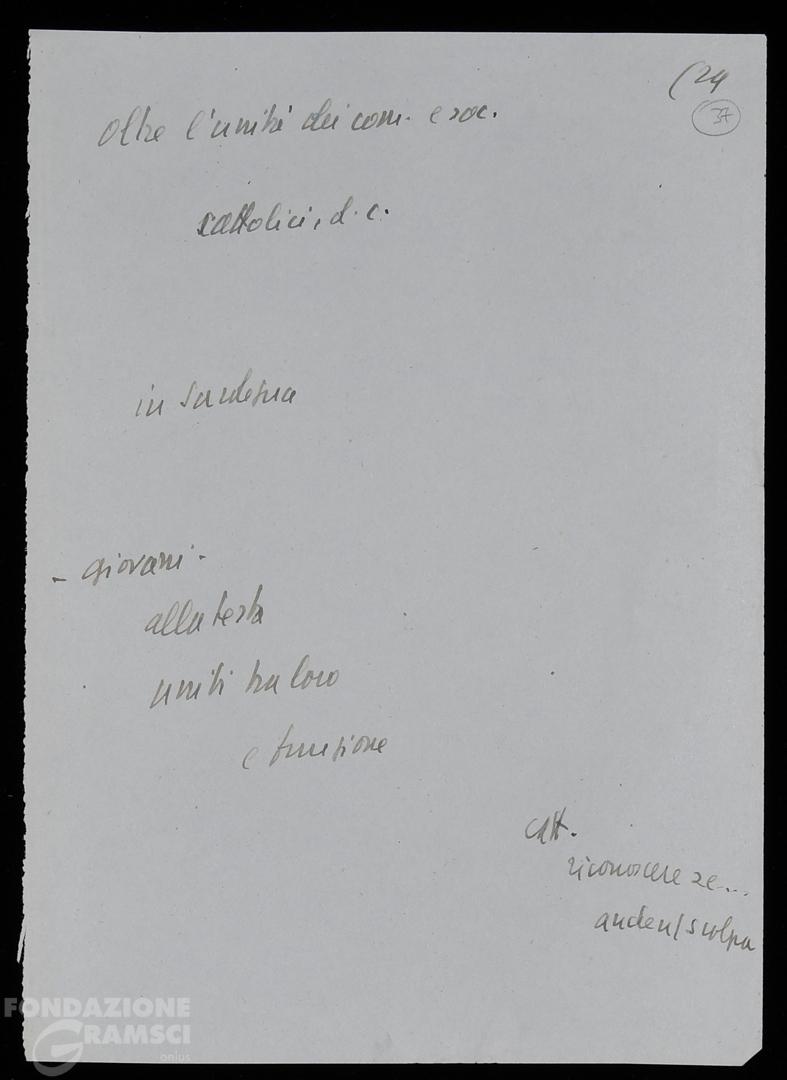 (24
37
Oltre l'unità dei com. e soc.
cattolici, d.c.
in Sardegna
- giovani -
alla testa
uniti tra loro
e funzione
catt.
riconoscere
FONDAZIONE
GRAMSCI
onlus